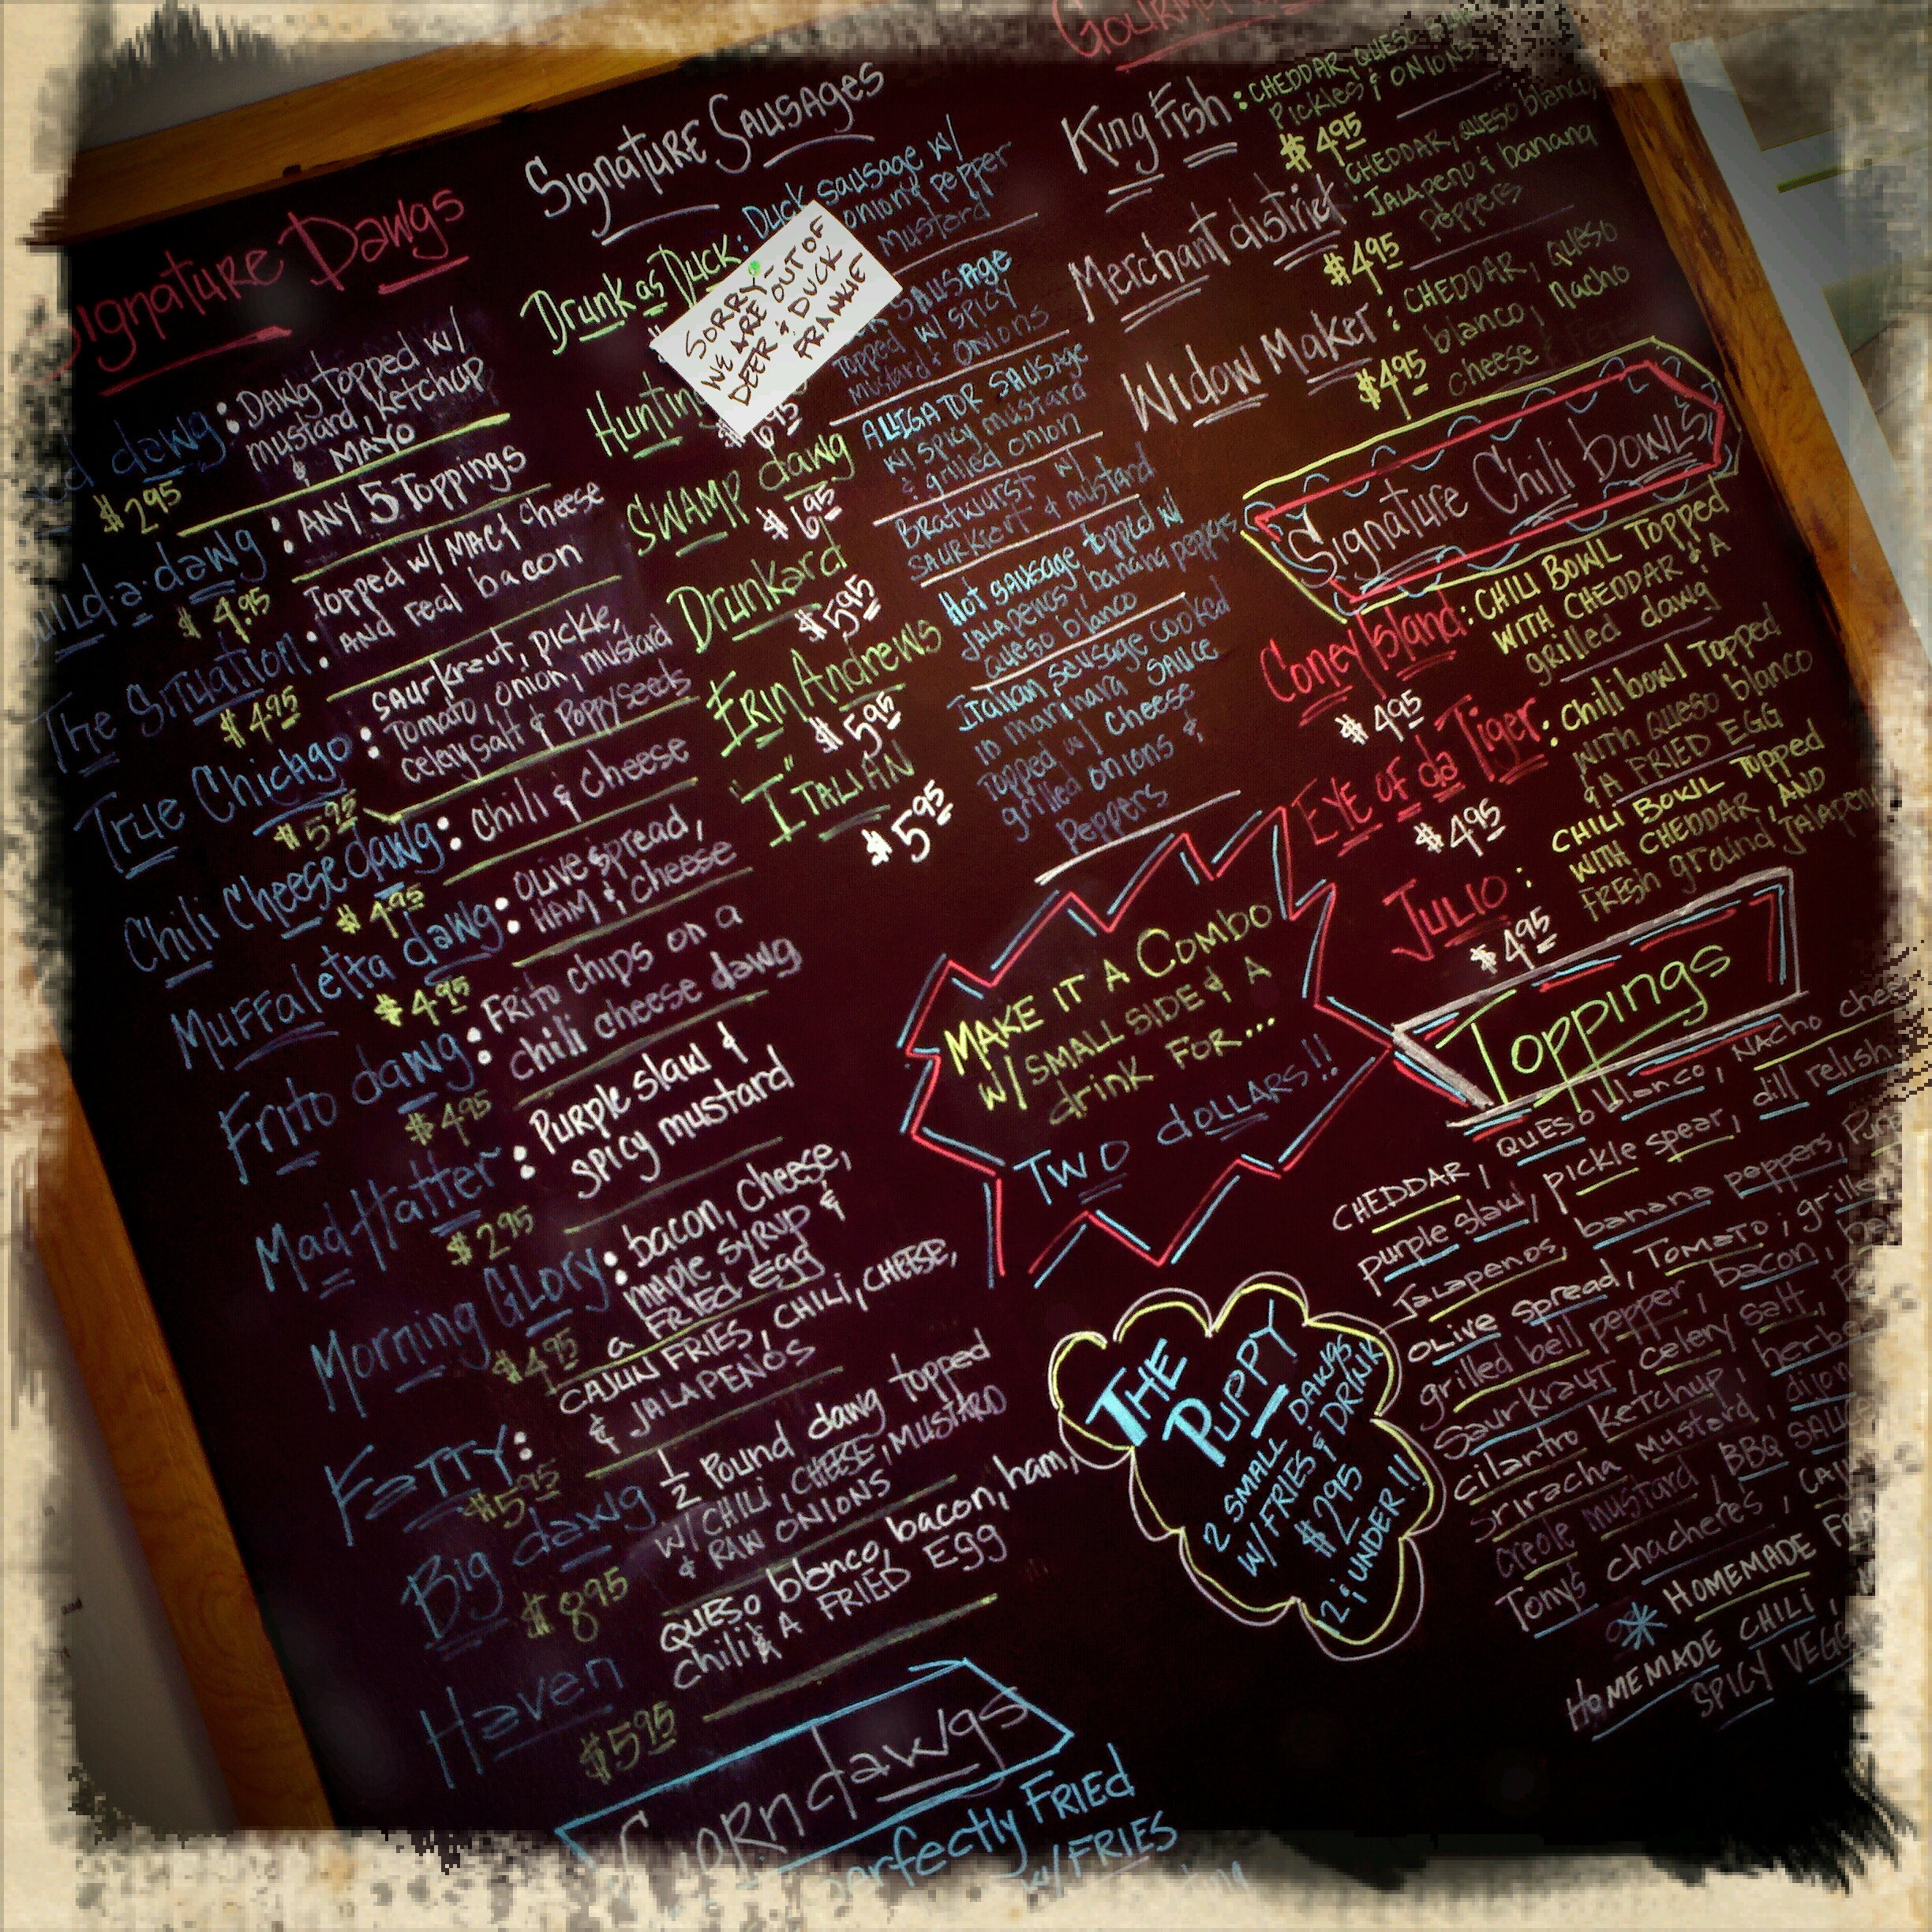 Signature Dawgs
dawg : DAWG topped w/
mustard, ketchup
& MAYO
$2.95
build-a-dawg : ANY 5 Toppings
$4.95
The Situation : Topped w/ MAC & cheese
AND real bacon
$4.95
True Chicago : saurkraut, pickle,
Tomato, onion, mustard
celery salt & Poppyseeds
$5.95
Chili Cheese dawg : Chili & cheese
$4.95
Muffaletta dawg : Olive spread,
HAM & Cheese
$4.95
Frito dawg : Frito chips on a
chili cheese dawg
$4.95
Mad Hatter : Purple slaw &
spicy mustard
$2.95
Morning Glory : bacon, cheese,
maple syrup &
a FRIED Egg
$4.95
Fatty : CAJUN FRIES, CHILI, CHEESE,
& JALAPEÑOS
$5.95
Big dawg ½ Pound dawg topped
w/ CHILI, CHEESE, MUSTARD
& RAW ONIONS
$8.95
Haven QUESO blanco, bacon, ham,
chili & A FRIED Egg
$5.95
Corndawgs
perfectly FRIED
w/ FRIES
Signature Sausages
Drunk as Duck : Duck sausage w/
onion & pepper
mustard
SORRY-
WE ARE OUT OF
DEER & DUCK
FRANKIE
Hunting
SAUSAGE
Topped w/ spicy
mustard & onions
$6.95
SWAMP dawg ALLIGATOR SAUSAGE
w/ spicy mustard
& grilled onion
$6.95
Drunkard Bratwurst w/
saurkrert & mustard
$5.95
Erin Andrews Hot sausage topped w/
jalapenos, banana peppers
queso blanco
$5.95
"I" Italian Italian sausage cooked
in marinara sauce
Topped w/ cheese
grilled onions &
peppers
$5.95
MAKE IT A COMBO
w/ SMALL SIDE & A
drink FOR...
TWO dOLLARS!!
THE
PUPPY
2 SMALL DAWGS
w/ FRIES & DRINK
$2.95
12 & UNDER!!
King Fish : CHEDDAR, QUESO BLANCO
Pickles & ONIONS
$4.95
Merchant district : CHEDDAR, QUESO blanco,
Jalapeno & banana
Peppers
$4.95
Widow Maker : CHEDDAR, QUESO
blanco, Nacho
cheese
$4.95
Signature Chili bowls
Coney Island : CHILI BOWL Topped
WITH CHEDDAR & A
grilled dawg
$4.95
EYE OF da Tiger : Chili bowl Topped
WITH QUESO blanco
& A FRIED EGG
$4.95
Julio : CHILI BOWL Topped
WITH CHEDDAR, AND
FRESH ground
$4.95
Toppings
CHEDDAR, QUESO blanco, NACHO
purple slaw, pickle spear, dill relish
Jalapenos, banana peppers,
olive spread, Tomato,
grilled bell pepper, bacon,
Saurkraut, celery salt,
cilantro ketchup,
sriracha mustard,
creole mustard, BBQ
Tony's chacheres,
* HOMEMADE
HOMEMADE CHILI,
SPICY